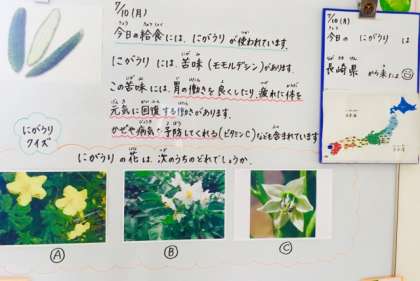 7/10(月)
今日の給食には、にがうりが使われています。
にがうりには、苦味(モモルデシン)があります。
この苦味には、胃の働きを良くしたり、疲れた体を
元気に回復する働きがあります。
かぜや病気を予防してくれる(ビタミンC)なども含まれています。
にがうり
クイズ
にがうりの花は、次のうちのどれでしょうか。
Ⓐ
Ⓑ
Ⓒ
7/10(月)
今日の にがうり は
長崎県 から来たよ